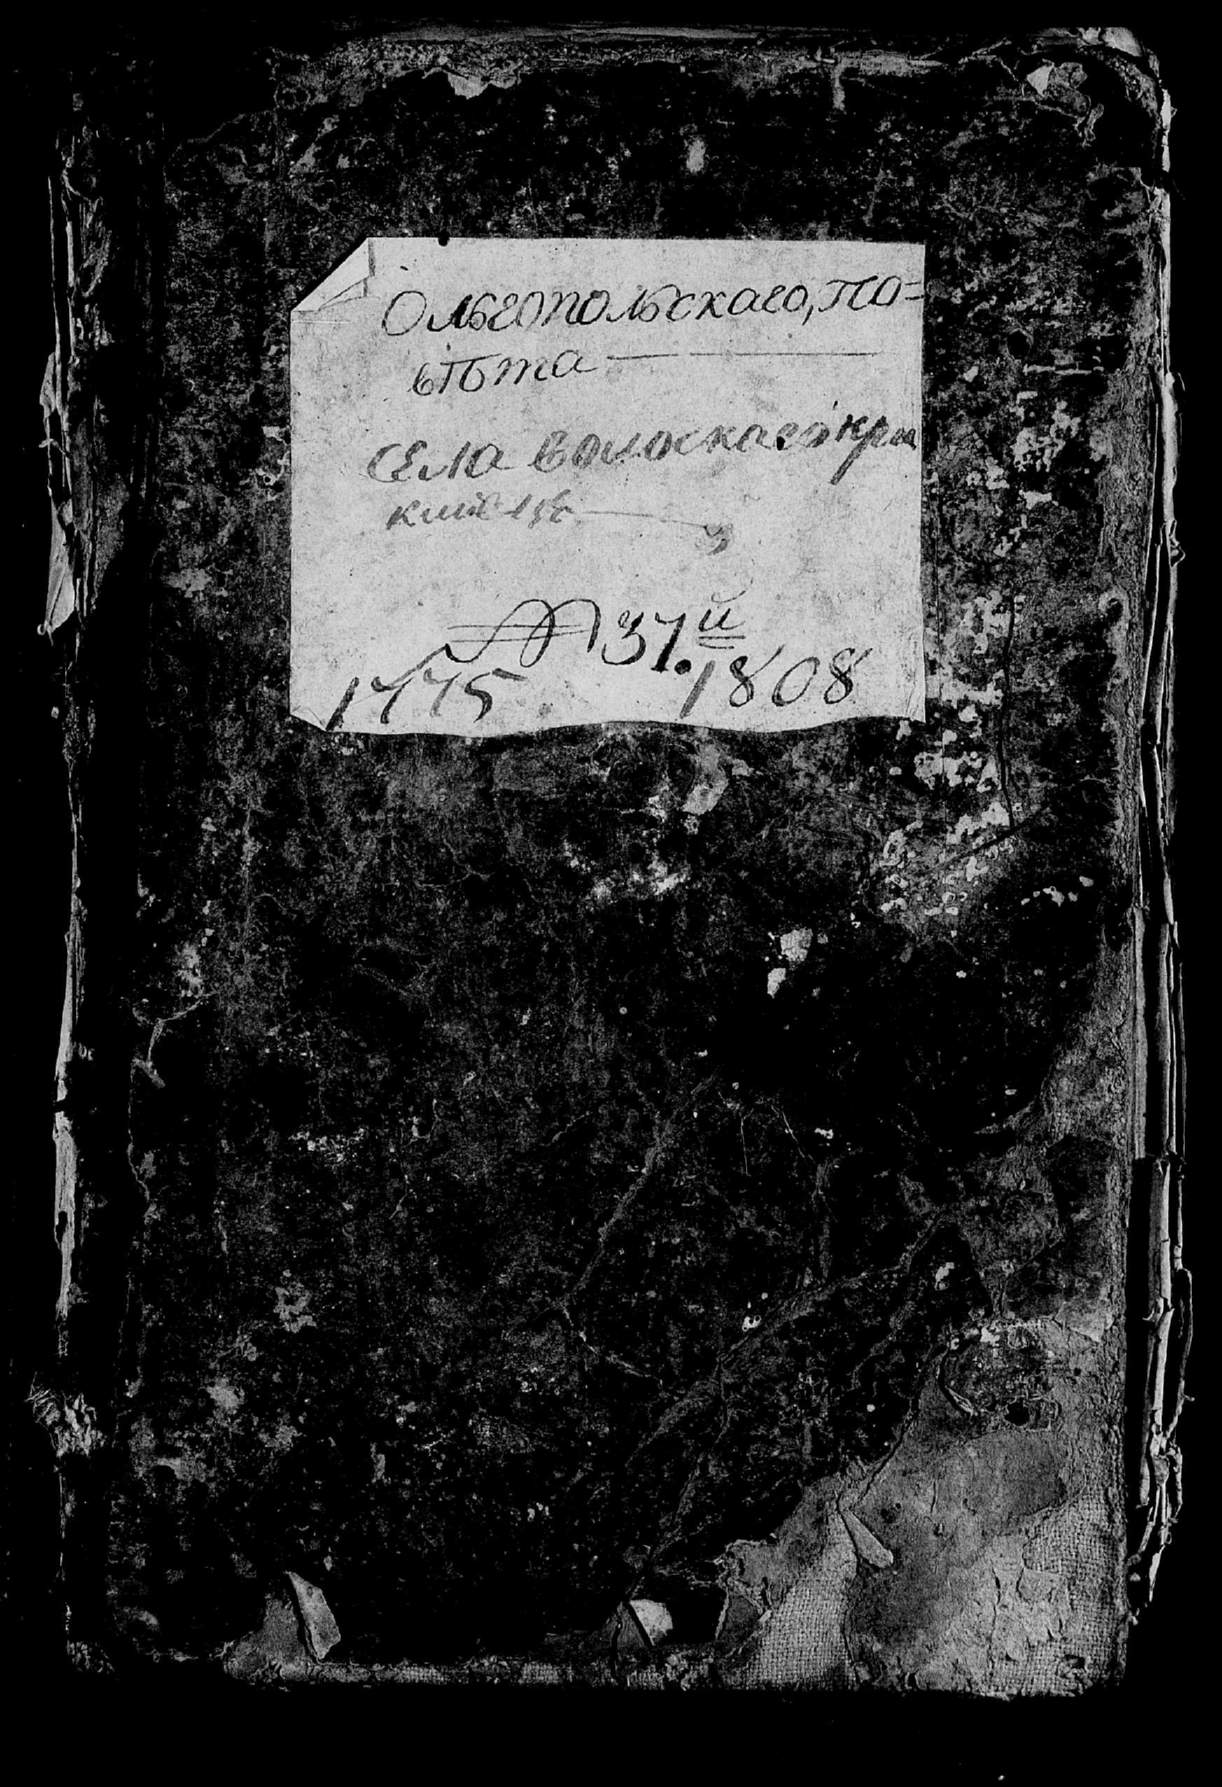 Ольгопольскаго, По=
вѣта
Села волоскаго
№ 37. и
1775 1808